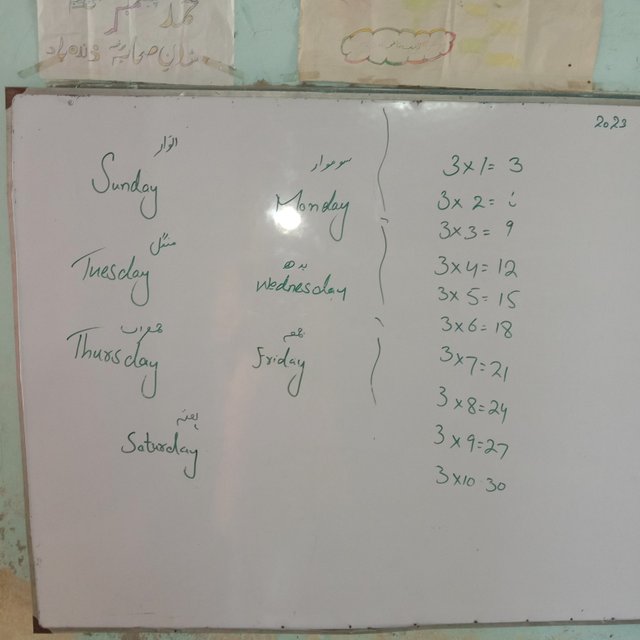 2023
اتوار
Sunday
سوموار
Monday
منگل
Tuesday
بدھ
Wednesday
جمعرات
Thursday
جمعہ
Friday
ہفتہ
Saturday
3×1= 3
3×2=
3×3= 9
3×4= 12
3×5= 15
3×6= 18
3×7= 21
3×8=24
3×9=27
3×10 30